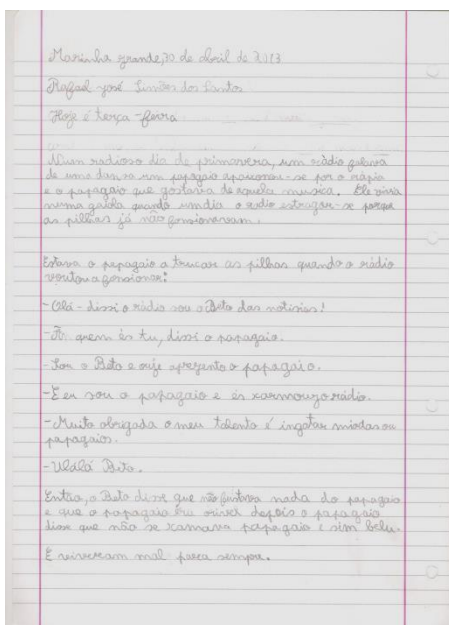 Marinha grande, 30 de abril de 2013
Rafael josé Simões dos Santos
Hoje é terça-feira
Num radioso dia de primavera, um rádio
de uma um papagaio apaixonou-se por o rápio
e o papagaio que gostava de aquela musica. Ele vivia
numa gaiola quando um dia o radio estragou-se porque
as pilhas já não fonsionavam.
Estava o papagaio a trucar as pilhas quando o rádio
voutou a fonsionar:
- Olá - dissi o rádio sou o Beto das notisias!
- Ã quem és tu, dissi o papagaio.
- Sou o Beto e oije aprezento o papagaio.
- E eu sou o papagaio e és xarmouzo rádio.
- Muito obrigada o meu talento é ingatar miodas ou
papagaios.
- Ulálá Beto.
Então, o Beto disse que não nada do papagaio
e que o papagaio era orivel depois o papagaio
disse que não se xamava papagaio e sim belu.
E viveram mal para sempre.